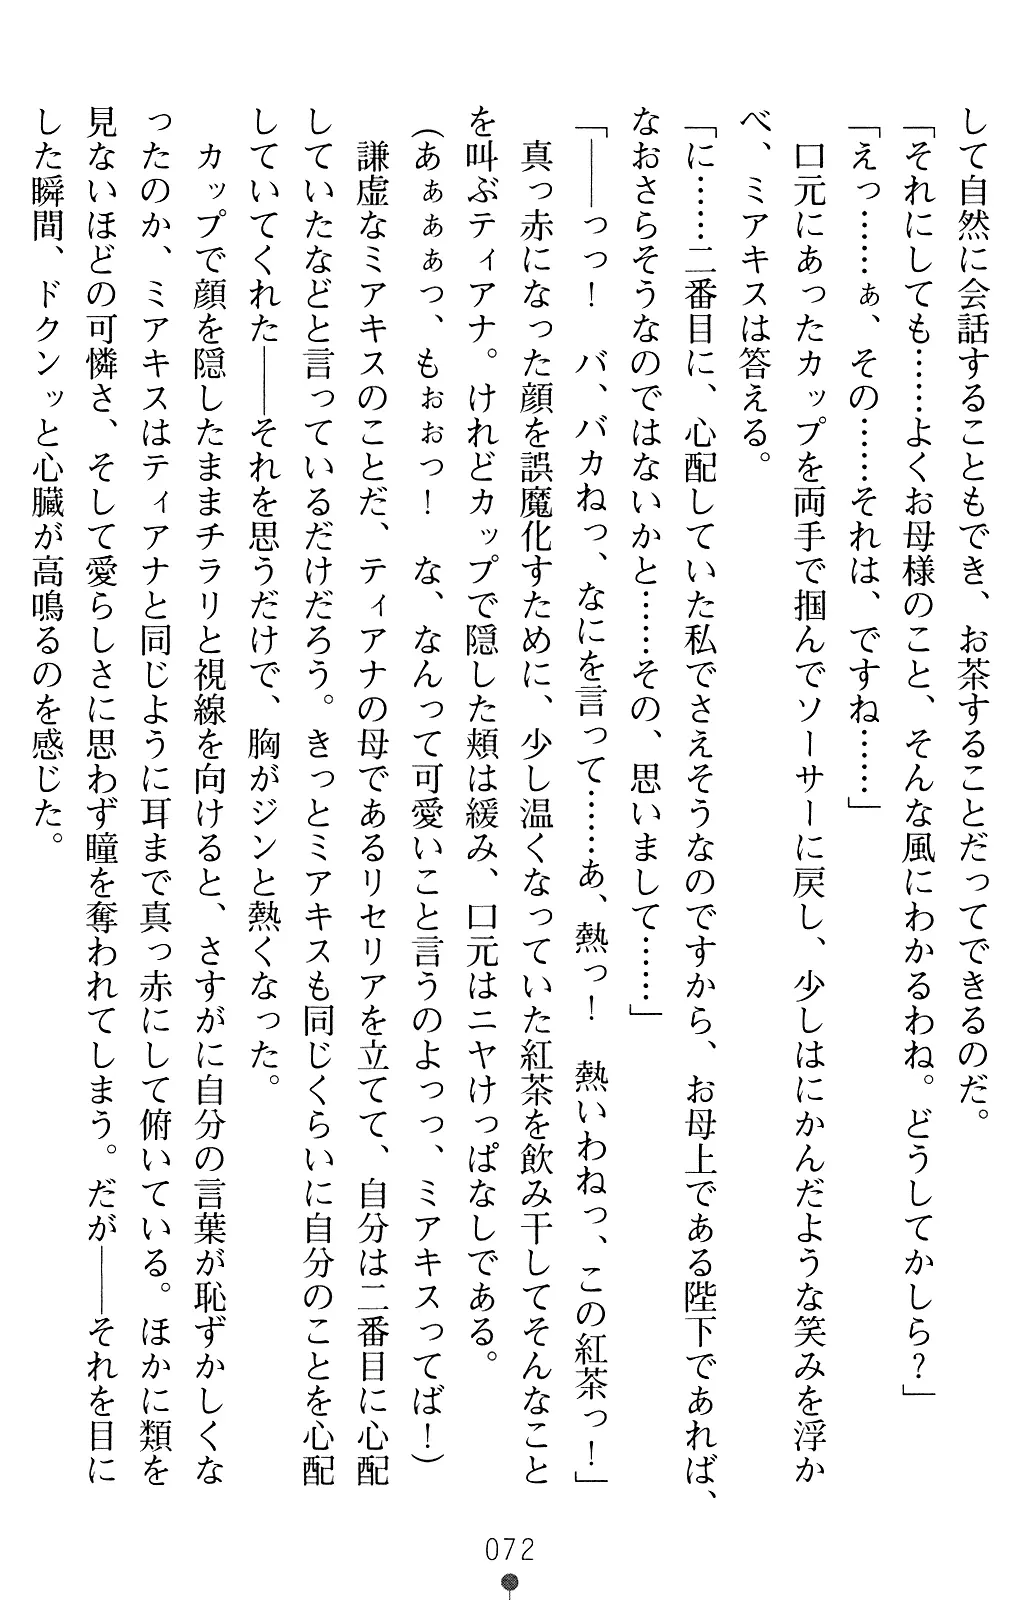 して自然に会話することもでき、お茶することだってできるのだ。
「それにしても……よくお母様のこと、そんな風にわかるわね。どうしてかしら？」
「えっ……ぁ、その……それは、ですね……」
　口元にあったカップを両手で掴んでソーサーに戻し、少しはにかんだような笑みを浮か
べ、ミアキスは答える。
「に……二番目に、心配していた私でさえそうなのですから、お母上である陛下であれば、
なおさらそうなのではないかと……その、思いまして……」
「――っっ！　バ、バカねっ、なにを言って……あ、熱っ！　熱いわねっ、この紅茶っ！」
　真っ赤になった顔を誤魔化すために、少し温くなっていた紅茶を飲み干してそんなこと
を叫ぶティアナ。けれどカップで隠した頬は緩み、口元はニヤけっぱなしである。
（あぁぁぁっ、もぉぉっ！　な、なんって可愛いこと言うのよっっ、ミアキスってば！）
　謙虚なミアキスのことだ、ティアナの母であるリセリアを立てて、自分は二番目に心配
していたなどと言っているだけだろう。きっとミアキスも同じくらいに自分のことを心配
していてくれた――それを思うだけで、胸がジンと熱くなった。
　カップで顔を隠したままチラリと視線を向けると、さすがに自分の言葉が恥ずかしくな
ったのか、ミアキスはティアナと同じように耳まで真っ赤にして俯いている。ほかに類を
見ないほどの可憐さ、そして愛らしさに思わず瞳を奪われてしまう。だが――それを目に
した瞬間、ドクンッと心臓が高鳴るのを感じた。
072